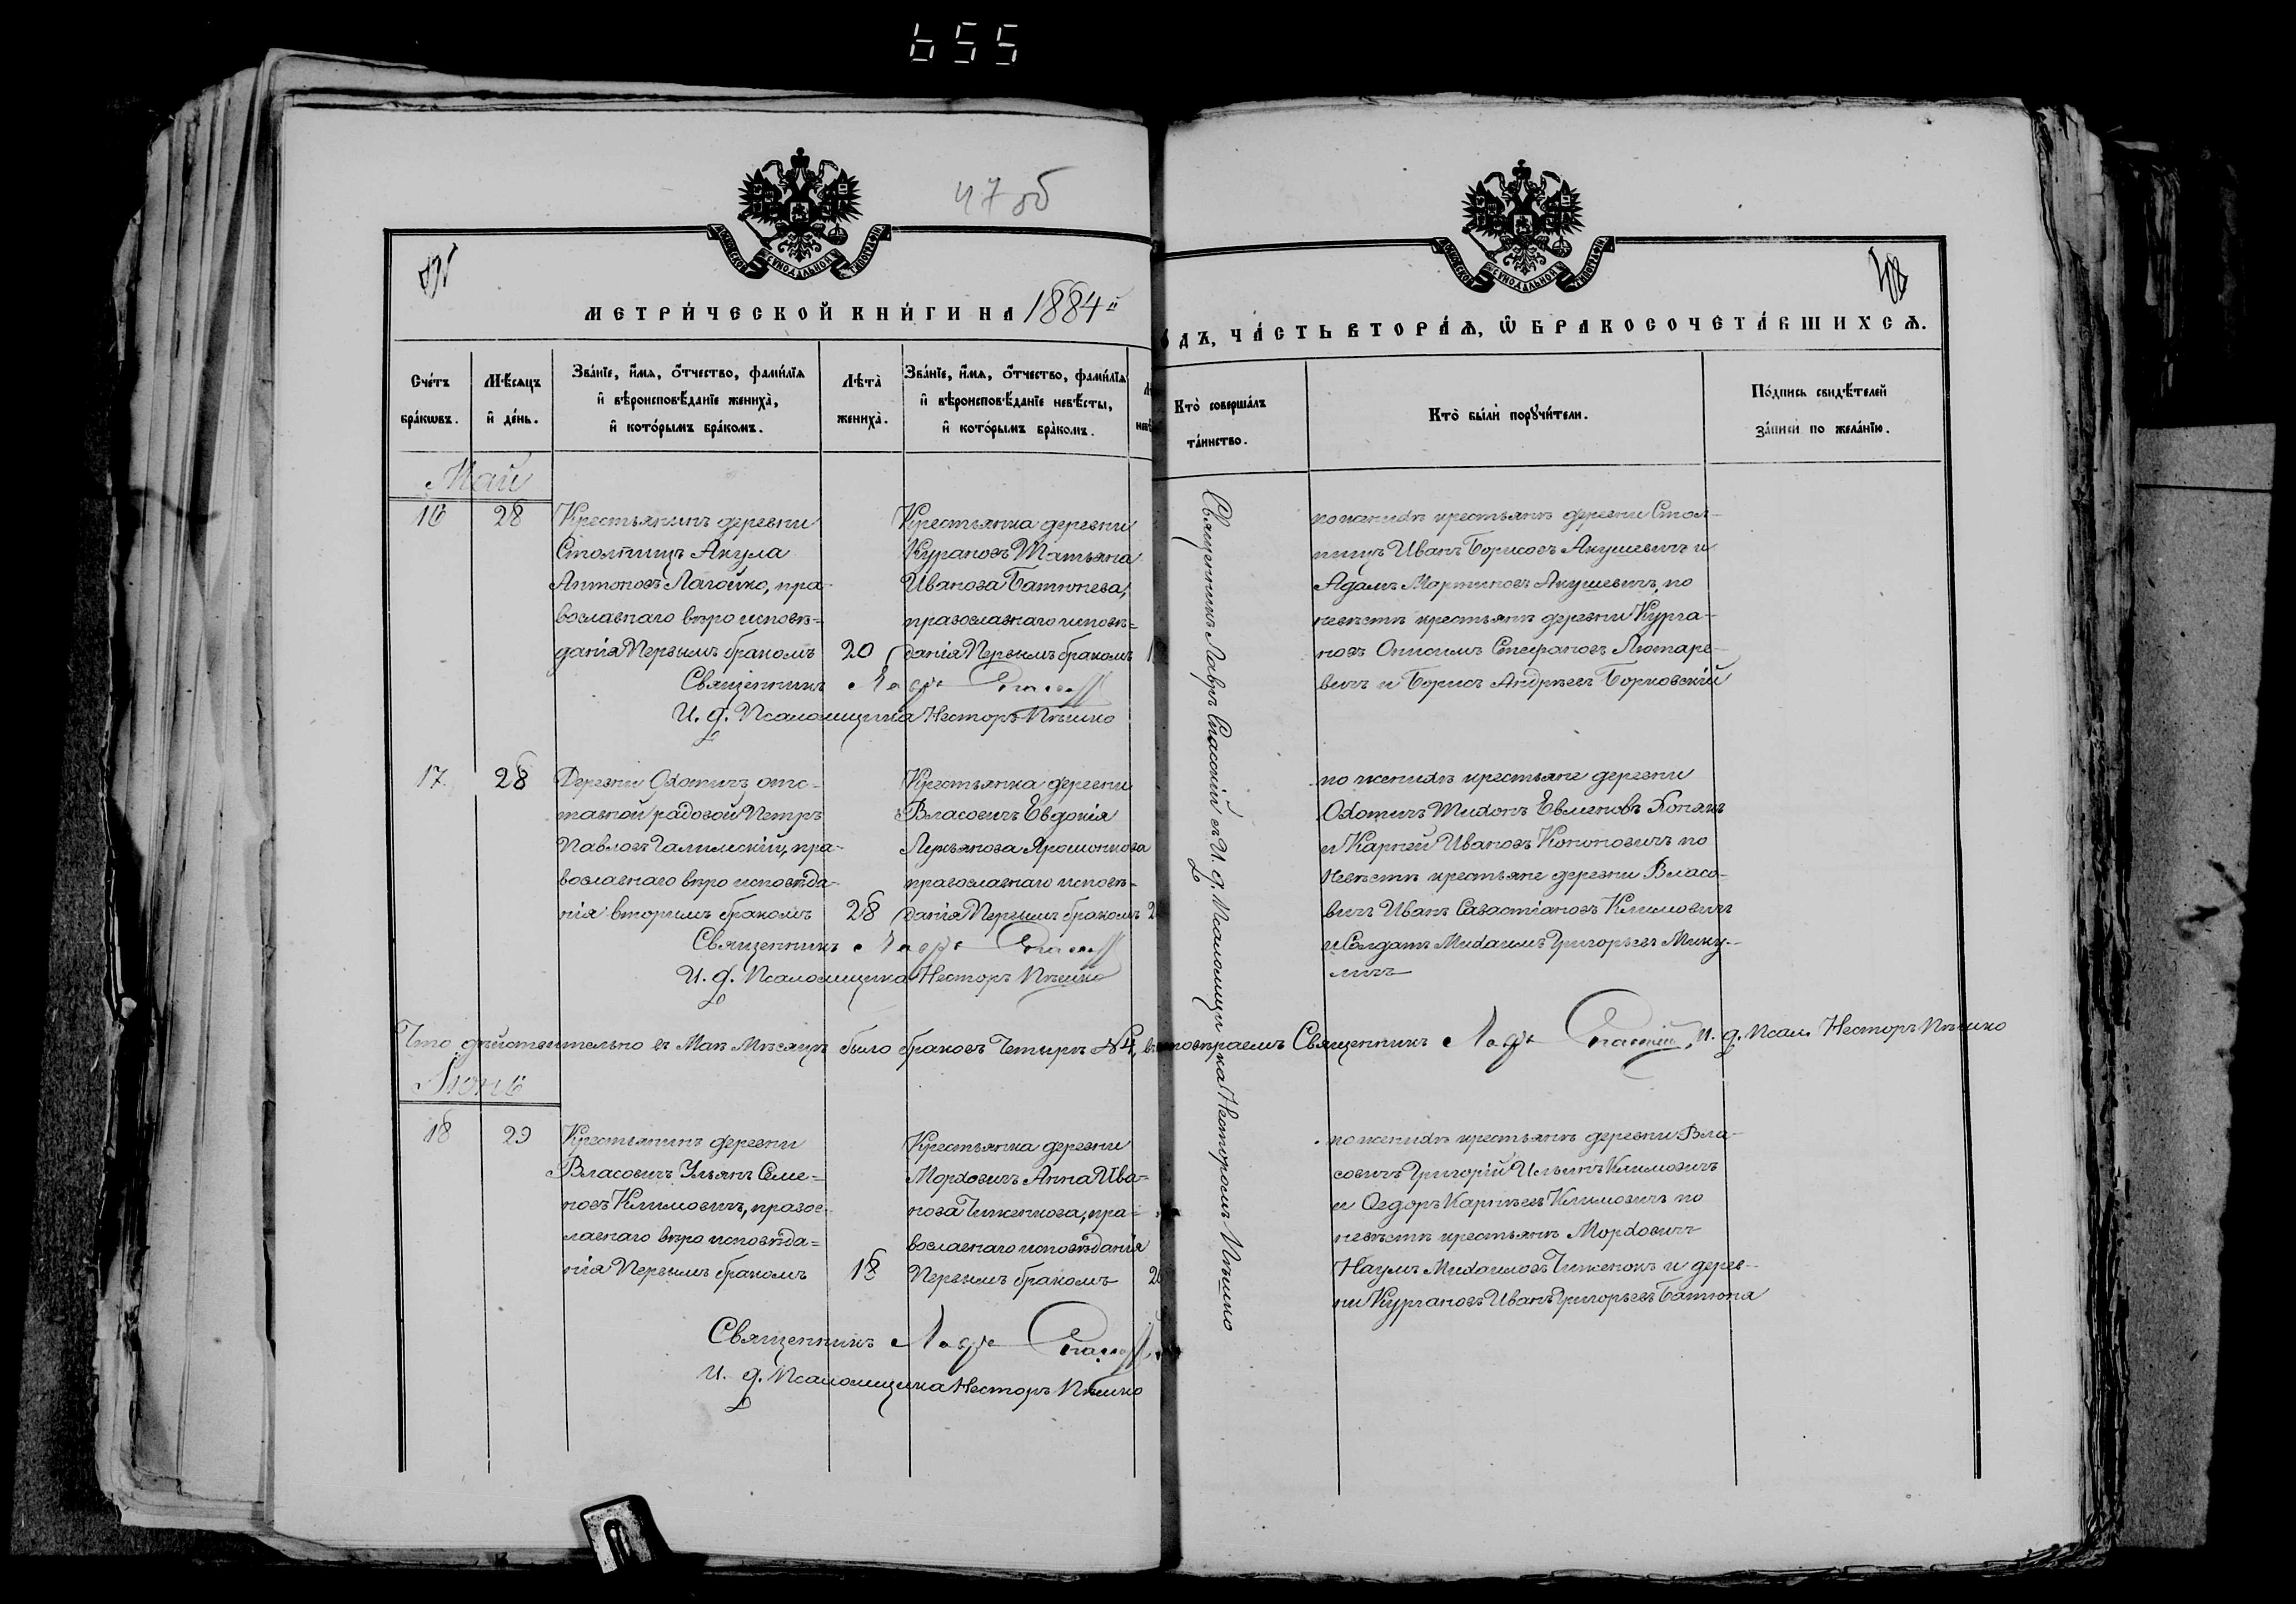 655
47 об
МЕТРИЧЕСКОЙ КНИГИ НА 1884й
ОДЪ, ЧАСТЬ ВТОРАЯ, Ѡ БРАКОСОЧЕТАВШИХСЯ.
Счетъ браковъ.
Мѣсяцъ и день.
Званіе, имя, отчество, фамилія
и вѣроисповѣданіе жениха,
и которымъ бракомъ.
Лѣта
жениха.
Званіе, имя, отчество, фамилія
и вѣроисповѣданіе невѣсты,
и которымъ бракомъ.
Кто совершалъ
таинство.
Кто были поручители.
Подпись свидѣтелей
записи по желанію.
Май
16
28
Крестьянинъ деревни
Столпищъ Акула
Антоновъ Лагойко, пра-
вославнаго вѣроисповѣ=
данія Первымъ бракомъ
20
Крестьянка деревни
Татьяна
Иванова Батюнева,
православнаго исповѣ=
данія Первымъ бракомъ
Священникъ Лавръ Спасскій
И. д. Псаломщика Несторъ Пѣшко
по женихѣ крестьянѣ деревни Стол-
пищъ Иванъ Борисовъ Акушевичъ и
Адамъ Мартиновъ Акушевичъ, по
невѣстѣ крестьянѣ деревни Курга-
новъ Онисимъ Стефановъ Лютаре-
вичъ и Борисъ Андреевъ Борковскій
Священникъ Лавръ Спасскій съ И. д. Псаломщика Несторомъ Пѣшко
17.
28
Деревни Охотичъ отс-
тавной рядовой Петръ
Павловъ Галимскій, пра-
вославнаго вѣроисповѣда-
нія вторымъ бракомъ
28
Крестьянка деревни
Власовичъ Евдокія
Лукьянова Ярошонкова
православнаго исповѣ-
данія Первымъ бракомъ
Священникъ Лавръ Спасскій
И. д. Псаломщика Несторъ Пѣшко
по женихѣ крестьяне деревни
Охотичъ Тихонъ Евменовъ
и Карпей Ивановъ Кононовичъ по
Невѣстѣ крестьяне деревни Власо-
вичъ Иванъ Савастіановъ Климовичъ
и Солдатъ Михаилъ Григорьевъ Мику-
личъ
Что дѣйствительно въ Маѣ Мѣсяцѣ было браковъ Четыре № 4, въ томъ Священникъ Лавръ Спасскій, И. д. Псал. Несторъ Пѣшко
Іюнь
18
29
Крестьянинъ деревни
Власовичъ Ульянъ Семе=
новъ Климовичъ, правос-
лавнаго вѣроисповѣда=
нія Первымъ бракомъ
18
Крестьянка деревни
Морховичъ Анна Ива=
нова Чиженкова, пра-
вославнаго исповѣданія
Первымъ бракомъ
Священникъ Лавръ Спасскій
И. д. Псаломщика Несторъ Пѣшко
по женихѣ крестьянѣ деревни Вла-
совичъ Григорій Ильинъ Климовичъ
и Ѳедоръ Карпѣевъ Климовичъ по
невѣстѣ крестьянѣ Морховичъ
Наумъ Михаиловъ Чиженокъ и дерев-
ни Кургановъ Иванъ Григорьевъ Батюня